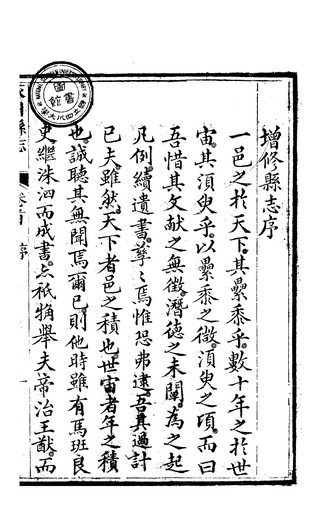 增修縣志序
一邑之扵天下其纍黍乎數十年之扵世
宙其須臾乎以纍黍之微須臾之頃而曰
吾惜其文献之無徵潛德之未闡為之起
凡例續遺書孳〻焉惟恐弗逮吾其過計
已夫雖然天下者邑之積也世宙者年之積
也誠聽其無聞焉爾已則他時雖有馬班良
史繼洙泗而成書亦祗犓舉夫帝治王猷而
縣志
序
一